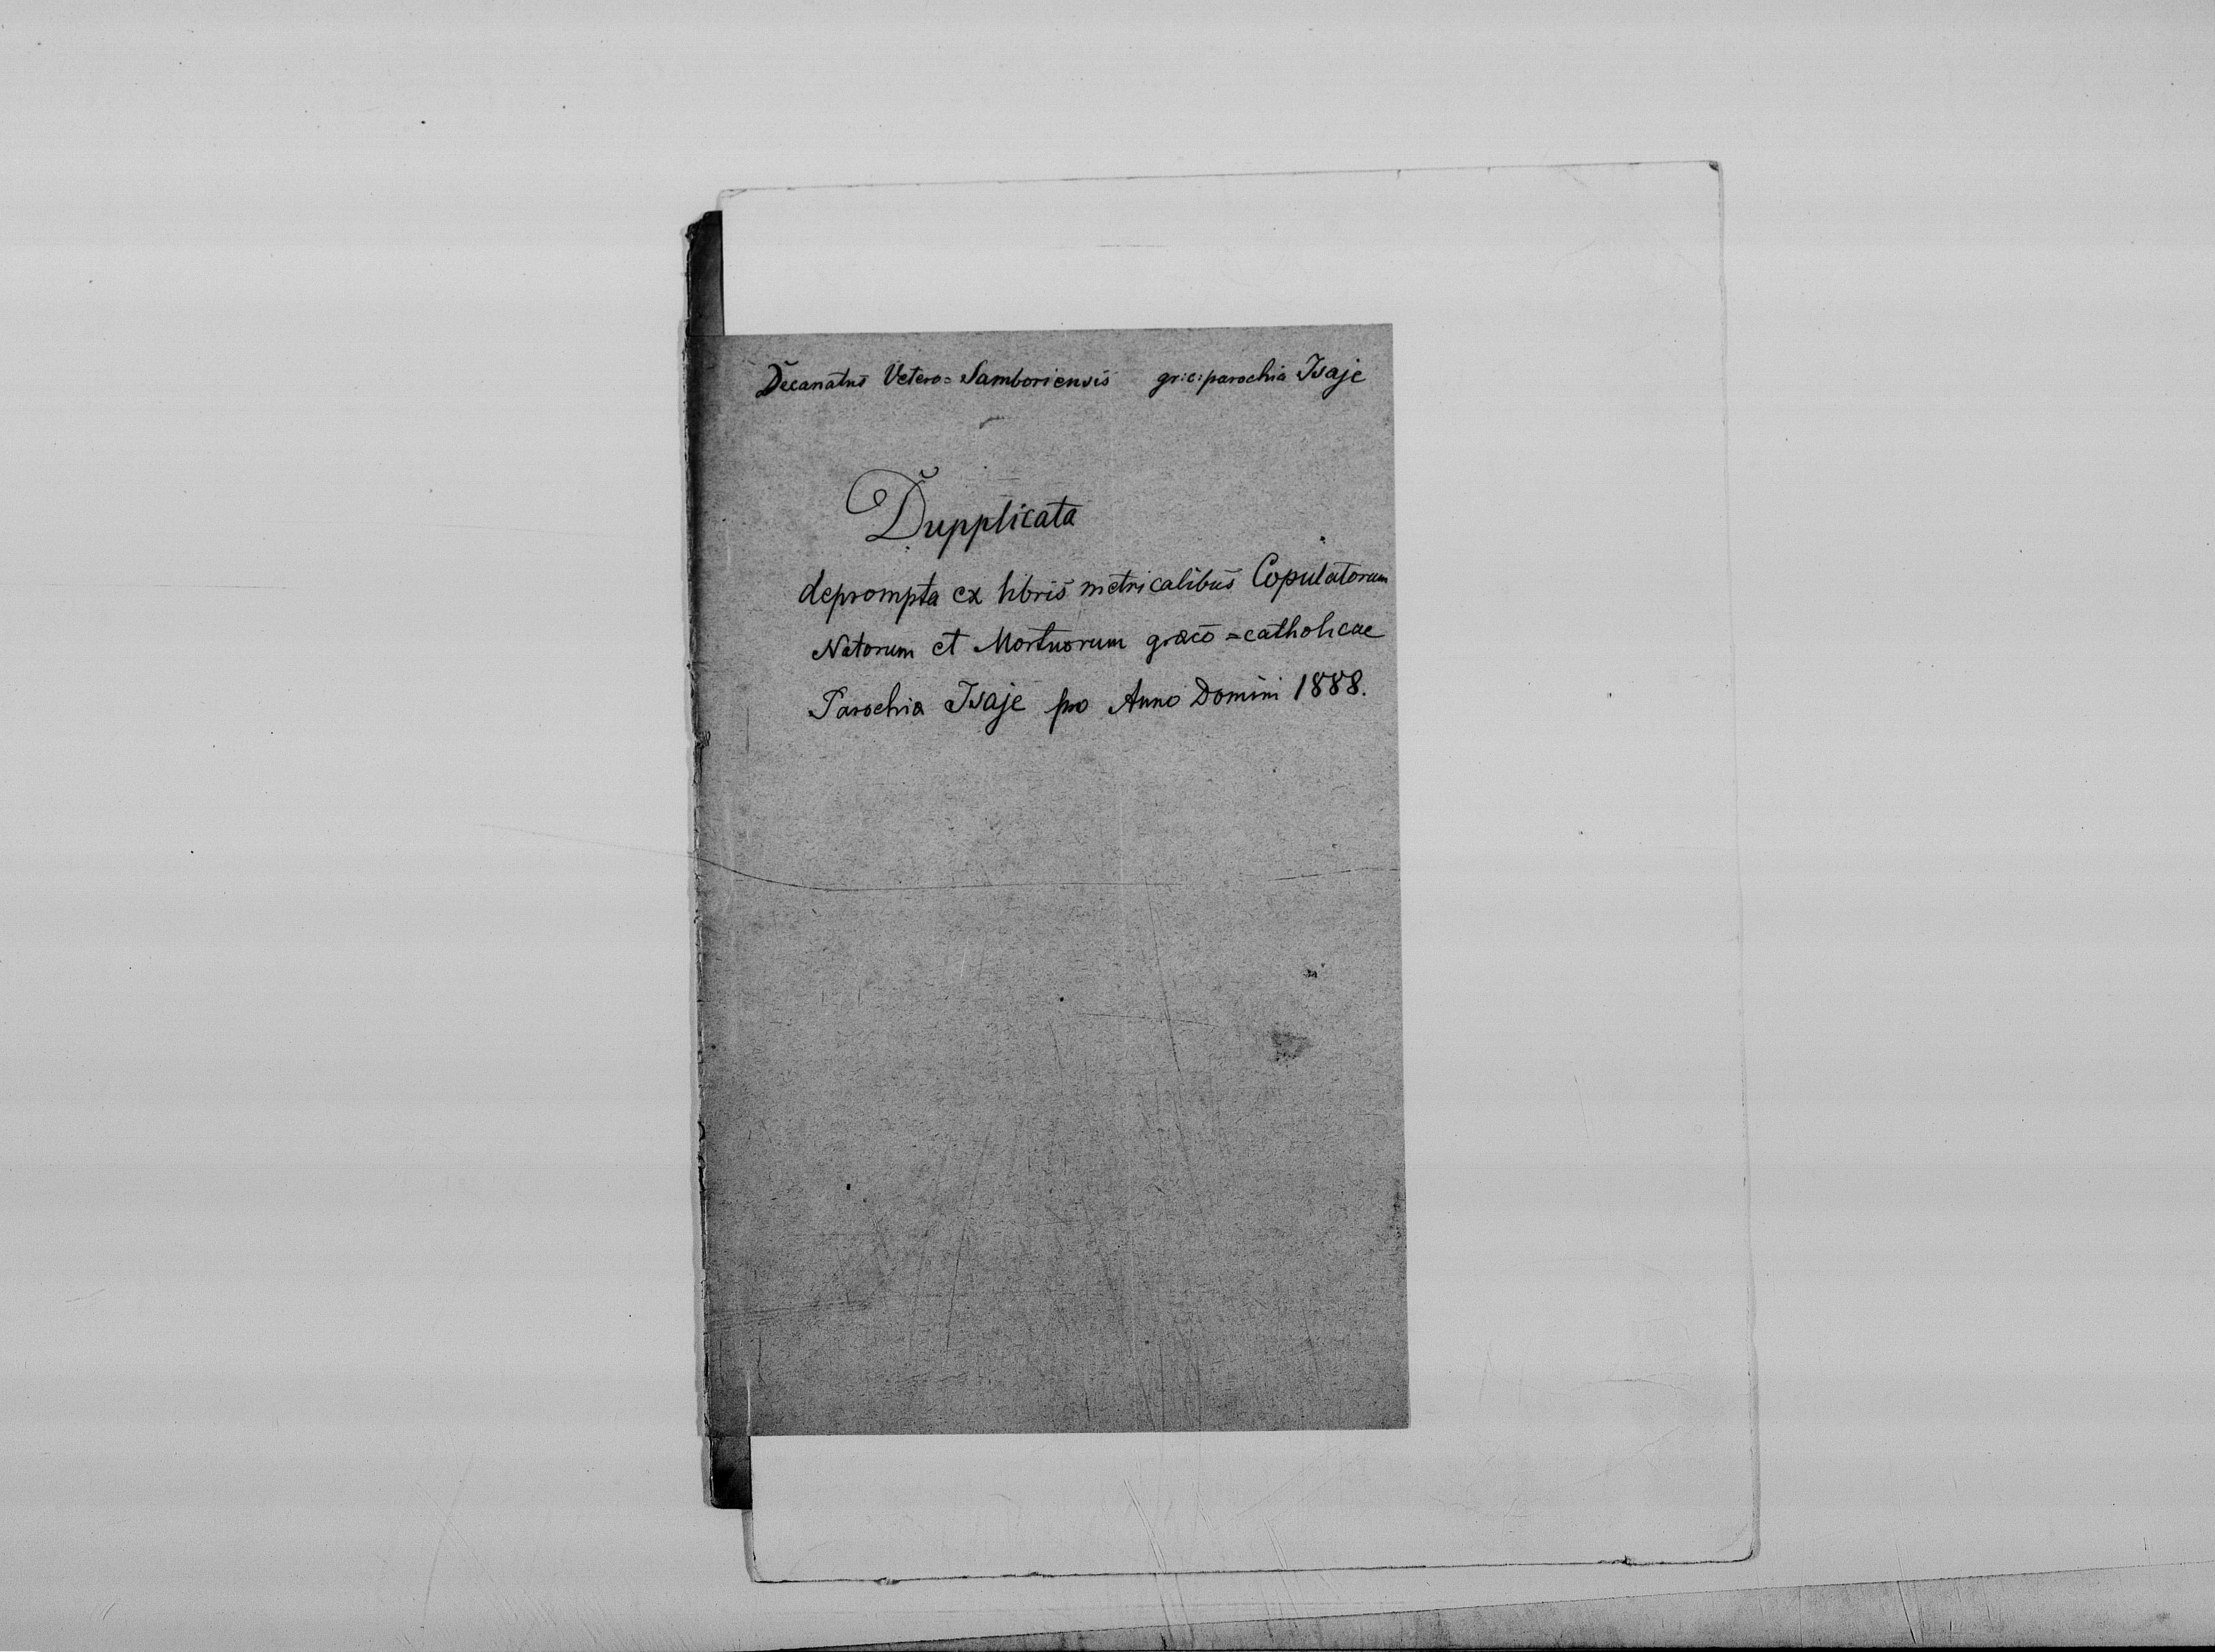 Decanatus Vetero=Samboriensis gr:c:parochia Isaje
Dupplicata
deprompta ex libris metricalibus Copulatorum
Natorum et Mortuorum græco=catholicae
Parochia Isaje pro Anno Domini 1888.